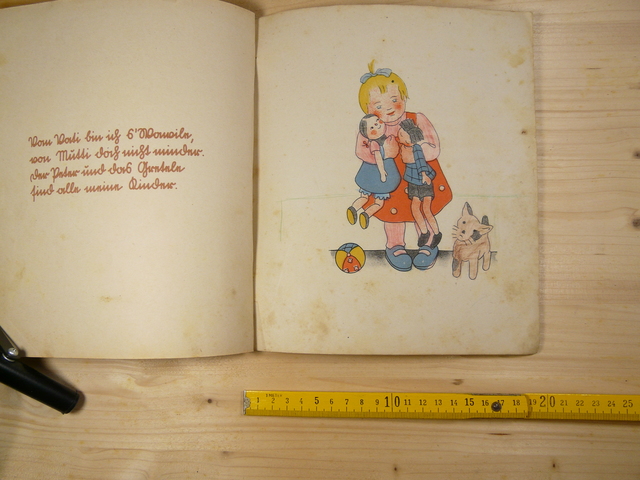 Vom Vati bin ich s'Wawile,
von Mutti doch nicht minder.
der Peter und das Gretele
sind alle meine Kinder.
1 2 3 4 5 6 7 8 9 10 11 12 13 14 15 16 17 18 19 20 21 22 23 24 25